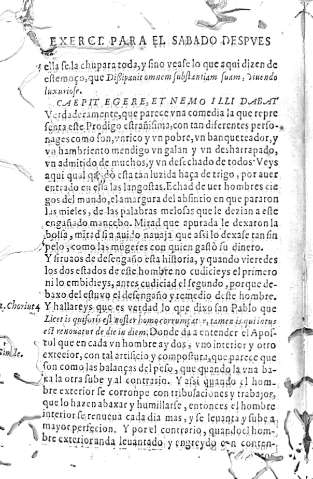 EXERCI. PARA EL SABADO DESPVES
ella se la chupara toda, y sino vease lo que aqui dizen de
este moço, que Dissipauit omnem substantiam suam, viuendo
luxuriose.
CAEPIT EGERE, ET NEMO ILLI DABAT
Verdaderamente, que parece vna comedia la que repre
senta este Prodigo estrañissima, con tan diferentes perso-
nages como son, vn rico y vn pobre, vn banqueteador, y
vn hambriento mendigo vn galan y vn desharrapado,
vn admitido de muchos, y vn desechado de todos Veys
aqui qual quedò esta tan luzida haça de trigo, por auer
entrado en ella las langostas. Echad de uer hombres cie
gos del mundo, el amargura del absintio en que pararon
las mieles, de las palabras melosas que le dezian a este
engañado mancebo. Mirad que apurada le dexaron la
bolsa, mirad sin que nauaja que assi lo dexase tan sin
pelo, como las mugeres con quien gastò su dinero.
Y siruaos de desengaño esta historia, y quando vieredes
los dos estados de este hombre no cudicieys el primero
ni lo embidieys, antes cudiciad el segundo, porque de-
baxo del estuvo el desengaño y remedio deste hombre.
2. Chorint 4 Y hallareys que es verdad lo que dixo san Pablo que
Licet is qui foris est noster homo corrumpatur, tamen is qui intus
est renouatur de die in diem. Donde da a entender el Apos
tol que en cada vn hombre ay dos, vno interior y otro
exterior, con tal artificio y compostura, que parece que
son como las balanças del peso, que quando la vna ba-
xa la otra sube y al contrario. Y assi quando el hom-
bre exterior se corrompe con tribulaciones y trabajos,
que lo hazen abaxar y humillarse, entonces el hombre
interior se renueua cada dia mas, y se leuanta y sube a
mayor perfecion. Y por el contrario, quando el hom-
bre exterior anda leuantado y engreydo con conten-